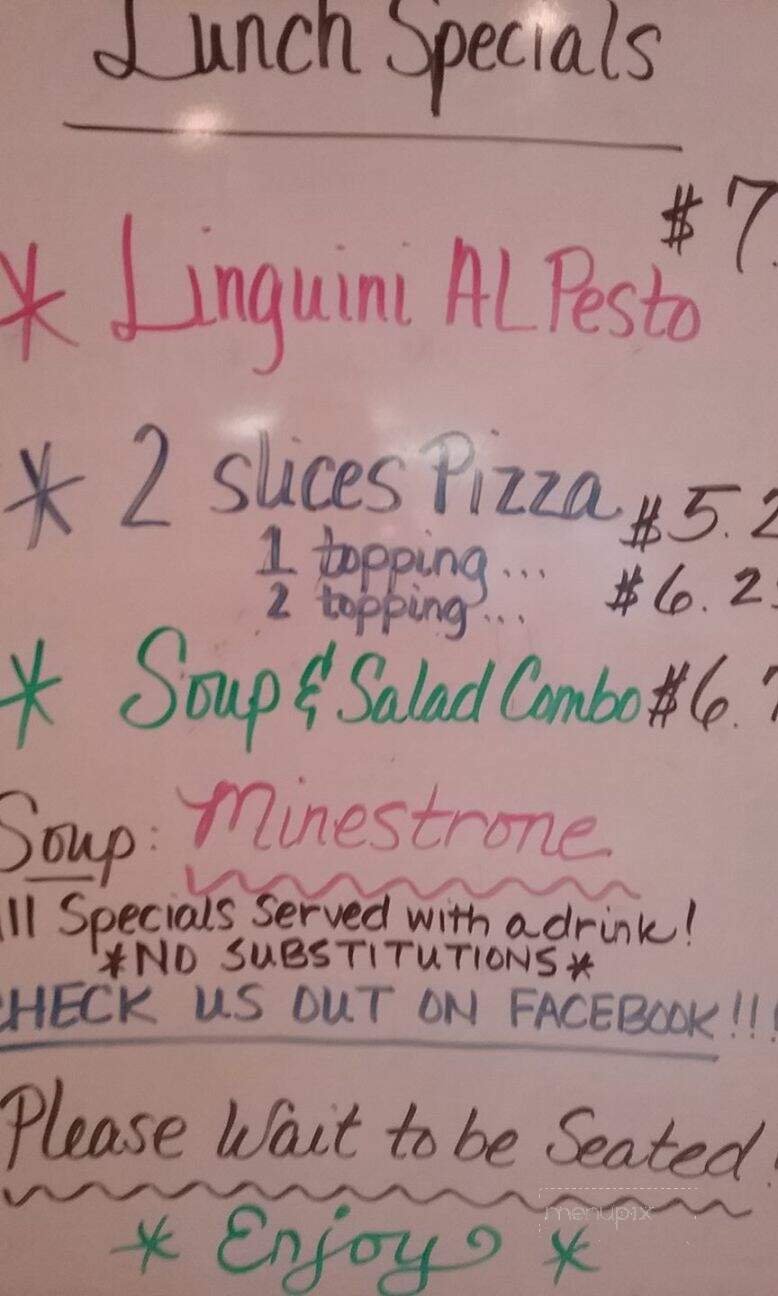 Lunch Specials
$7.
* Linguini AL Pesto
* 2 slices Pizza $5.2
1 topping ...
2 topping ... $6.2
* Soup & Salad Combo $6.7
Soup: Minestrone
ll Specials Served with a drink!
*NO SUBSTITUTIONS*
CHECK US OUT ON FACEBOOK!!!
Please Wait to be Seated!
menupix
* Enjoy *